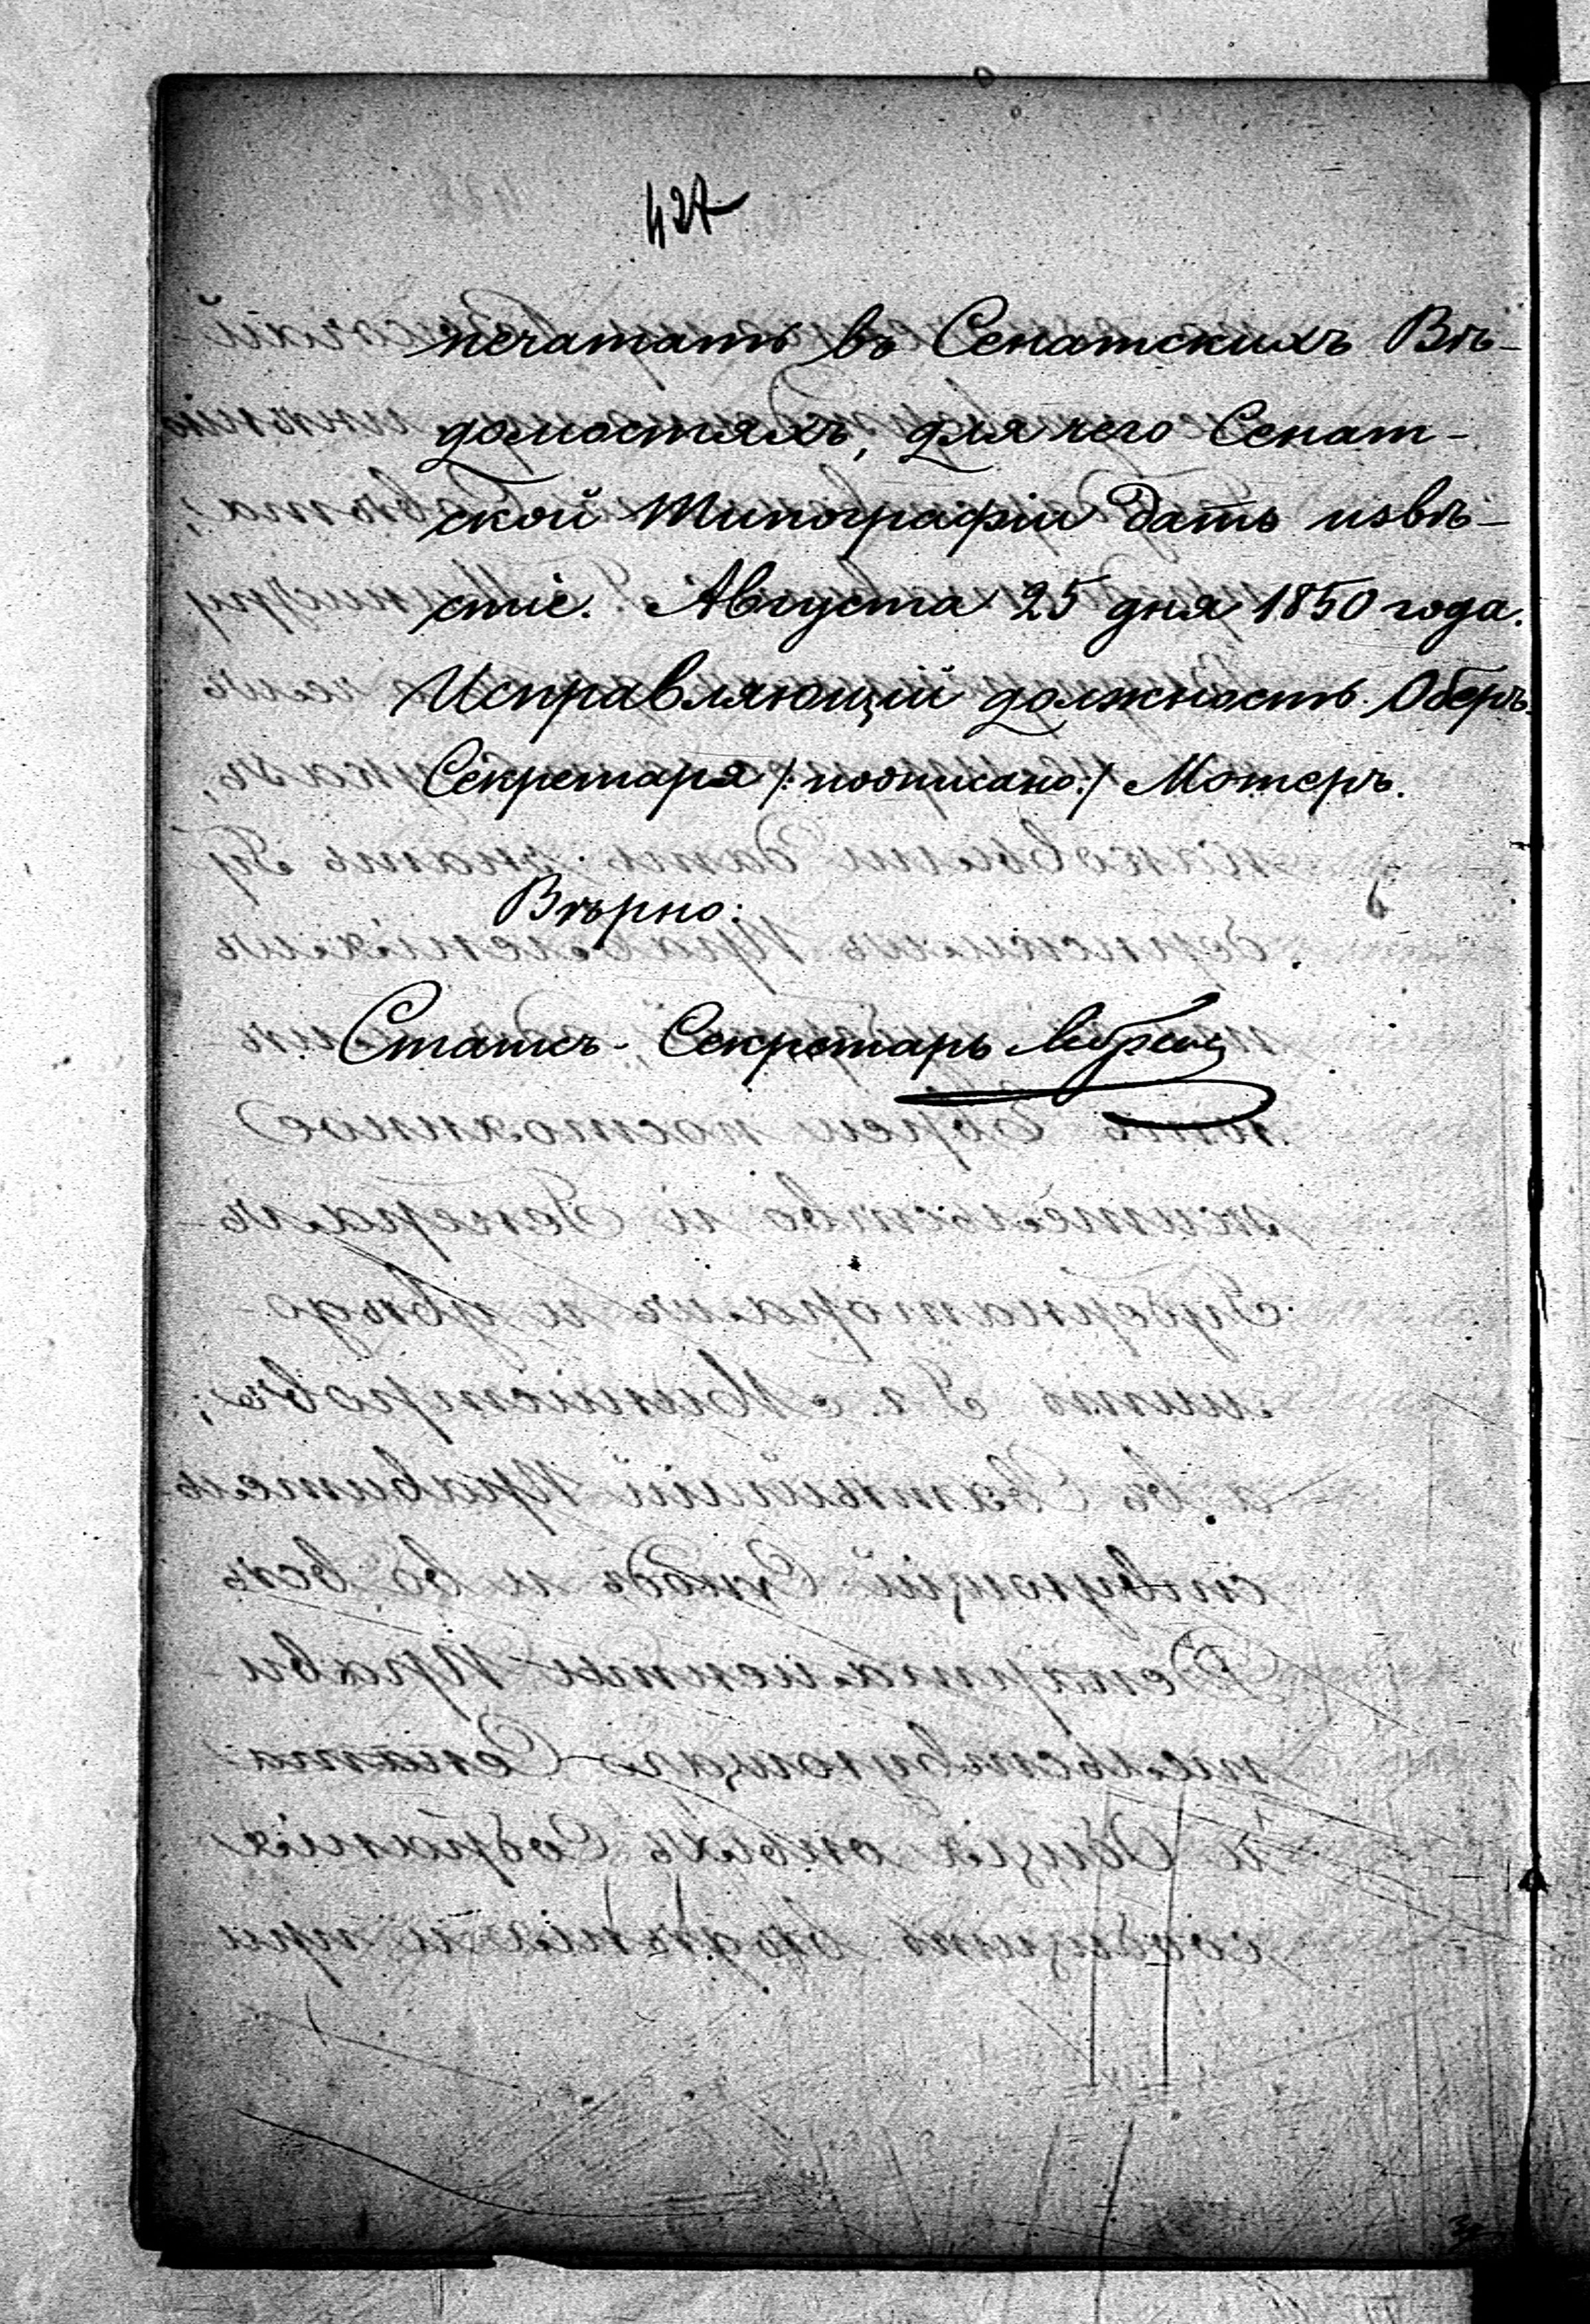 427
печатать въ Сенатскихъ Вѣ-
домостяхъ, для чего Сенат-
ской Типографіи дать извѣ-
стіе. Августа 25 дня 1850 года.
Исправляющій должность Оберъ-
Секретаря /:подписано:/ Мотеръ.
Вѣрно:
Статсъ-Секретарь